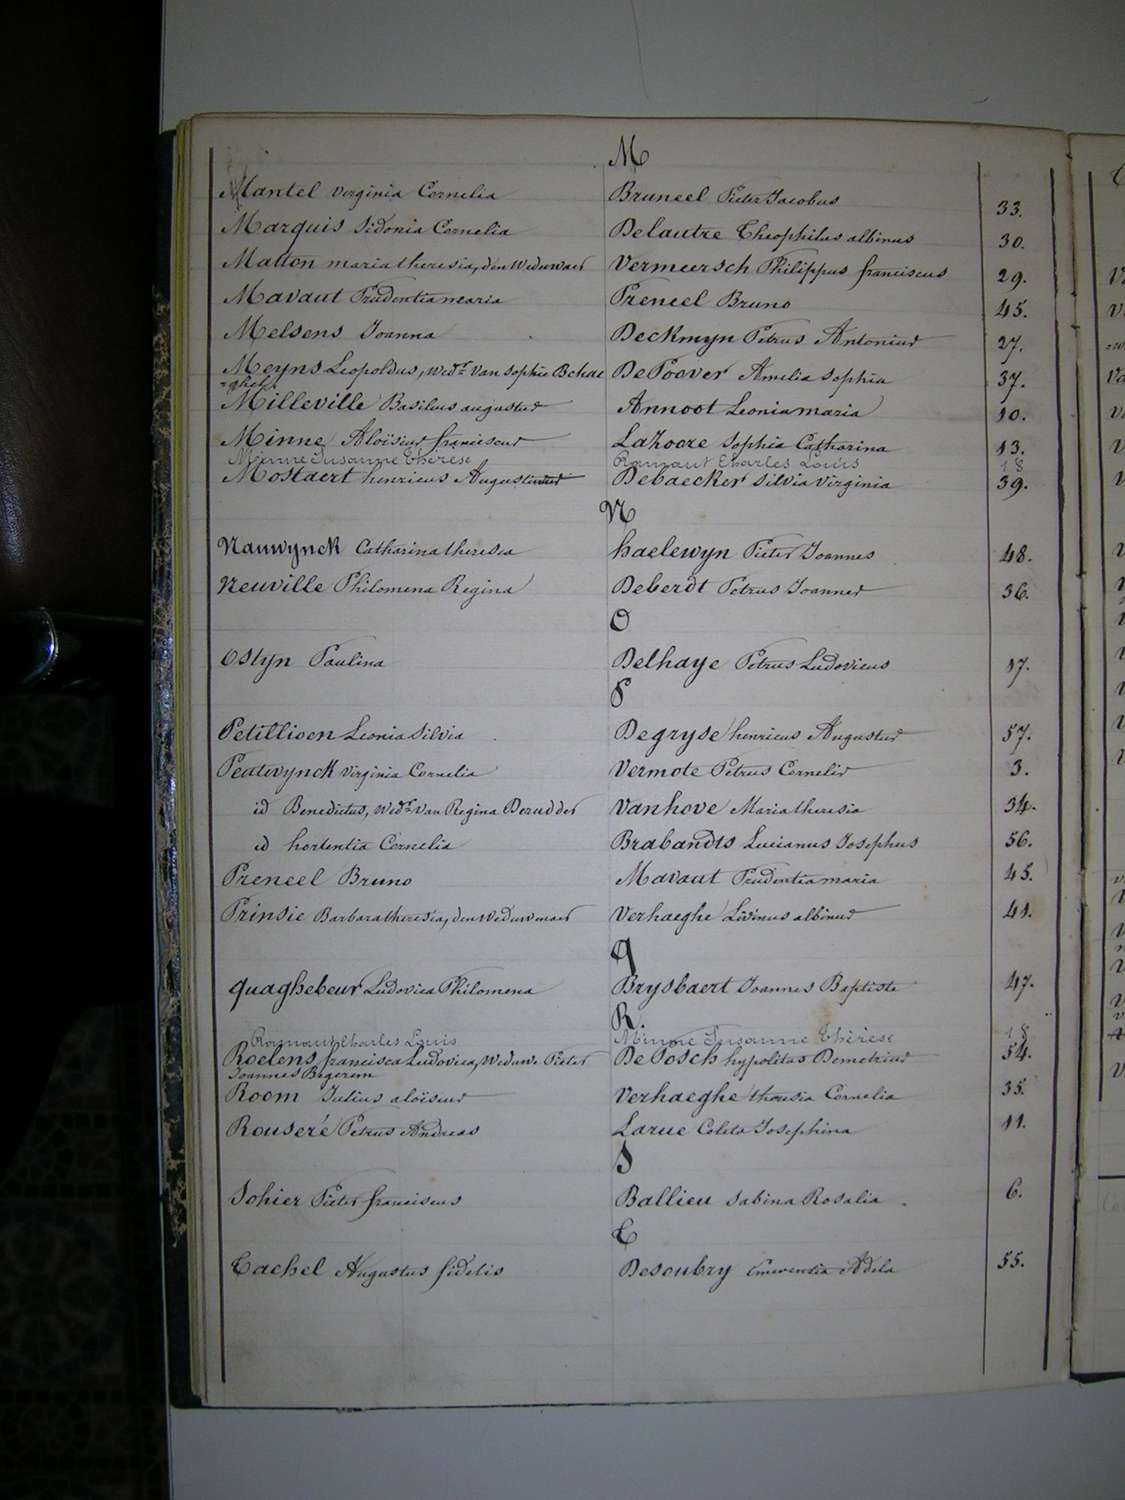 M
Mantel Virginia Cornelia Bruneel Pieter Jacobus 33.
Marquis Sidonia Cornelia Delautre Theophilus albinus 30.
Matton maria theresia, den Weduwaer Vermeersch Philippus franciscus 29.
Mavaut Prudentia maria Preneel Bruno 45.
Melsens Joanna Deckmyn Petrus Antonius 27.
Meyns Leopoldus, Wedr. Van Sophie Bchae DePoover Amelia Sophia 37.
=ghels
Milleville Basilius augustus Annoot Leonia maria 10.
Minne Aloïsius franciscus Lahooze Sophia Catharina 13.
Minne Susanne Thérèse Ramaut Charles Louis 18
Mostaert henricus Augustinus Debaecker Silvia Virginia 39.
N
Nauwynck Catharina theresia haelewyn Pieter Joannes 48.
Neuville Philomena Regina Deberdt Petrus Joannes 36.
O
Ostyn Paulina Delhaye Petrus Ludovicus 17.
P
Petillioen Leonia Silvia Degryse henricus Augustus 57.
Peutevynck Virginia Cornelia Vermote Petrus Cornelis 3.
id Benedictus, Wedr. Van Regina Derudder Vanhove Maria theresia 34.
id hortentia Cornelia Brabandts Lucianus Josephus 56.
Preneel Bruno Mavaut Prudentia maria 45.
Prinsie Barbara theresia, den Weduwenaer Verhaeghe Livinus albinus 41.
Q
Quaghebeur Ludovica Philomena Brysbaert Joannes Baptiste 47.
R.
Ramaut Charles Louis Minne Susanne Thérèse 18
Roelens francisca Ludovica, Weduwe Pieter DePosch hypolitus Demetrius 54.
Joannes Begerem
Room Julius aloïsius Verhaeghe theresia Cornelia 35.
Rouseré Petrus Andreas Larue Coleta Josephina 11.
S
Sohier Pieter franciscus Ballieu Sabina Rosalia 6.
T
Tachel Augustus fidelis Desoubry Emerentia Adela 55.